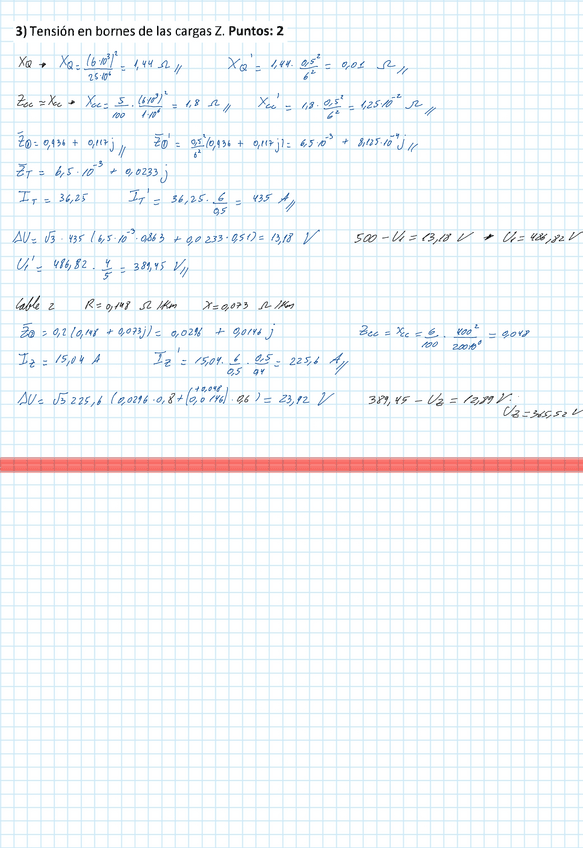 3) Tensión en bornes de las cargas Z. Puntos: 2
XQ → XQ = (6·10³)² / 25·10⁶ = 1,44 Ω // XQ' = 1,44 · 0,5² / 6² = 0,01 Ω //
Zcc ≈ Xcc → Xcc = 5/100 · (6·10³)² / 1·10⁶ = 1,8 Ω // Xcc' = 1,8 · 0,5² / 6² = 1,25·10⁻² Ω //
Z̄① = 0,936 + 0,117j // Z̄①' = 0,5² / 6² (0,936 + 0,117j) = 6,5·10⁻³ + 8,125·10⁻⁴j //
Z̄T = 6,5·10⁻³ + 0,0233j
IT = 36,25 IT' = 36,25 · 6 / 0,5 = 435 A //
ΔU = √3 · 435 (6,5·10⁻³ · 0,863 + 0,0233 · 0,51) = 13,18 V 500 - U₁ = 13,18 V → U₁ = 486,82 V
U₁' = 486,82 · 4/5 = 389,45 V //
Cable 2 R = 0,148 Ω/Km X = 0,073 Ω/Km
Z̄② = 0,2 (0,148 + 0,073j) = 0,0296 + 0,0146j Zcc = Xcc = 6/100 · 400² / 200·10³ = 0,048
IZ = 15,04 A IZ' = 15,04 · 6/0,5 · 0,5/0,4 = 225,6 A //
ΔU = √3 225,6 (0,0296 · 0,8 + (0,0146 +0,048) · 0,6) = 23,92 V 389,45 - UZ =
UZ = 365,52 V